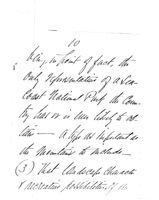 10
being in front of fact, the
only representation of a Sea-
Coast National Park the Coun-
try has or is ever likely to ob-
tain — a type as important as
the Mountains to include —
(3) That landscape character
& recreative possibilities of the